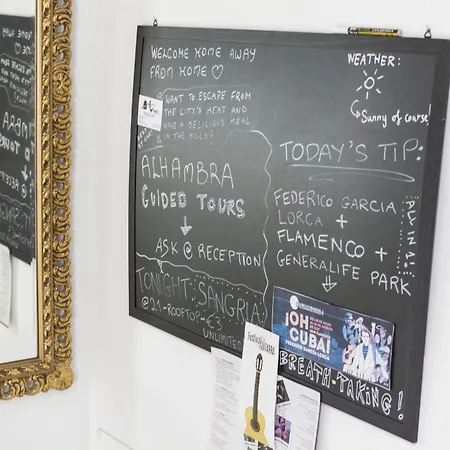 WELCOME HOME AWAY
FROM HOME ♡
WANT TO ESCAPE FROM
THE CITY'S HEAT AND
HAVE A DELICIOUS MEAL
IN THE HILLS?
ALHAMBRA
GUIDED TOURS
ASK @ RECEPTION
TONIGHT: SANGRIA:
@21-ROOFTOP-€3
UNLIMITED
WEATHER:
Sunny of course!
TODAY'S TIP:
FEDERICO GARCIA
LORCA +
FLAMENCO +
GENERALIFE PARK
ALL IN 1
¡OH
CUBA!
FEDERICO GARCÍA LORCA
BREATH-TAKING!